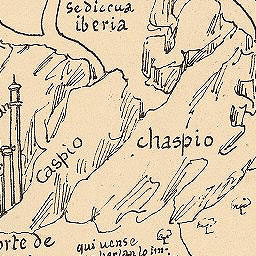 sediccua
iberia
chaspio
Caspio
orte de
qui uense